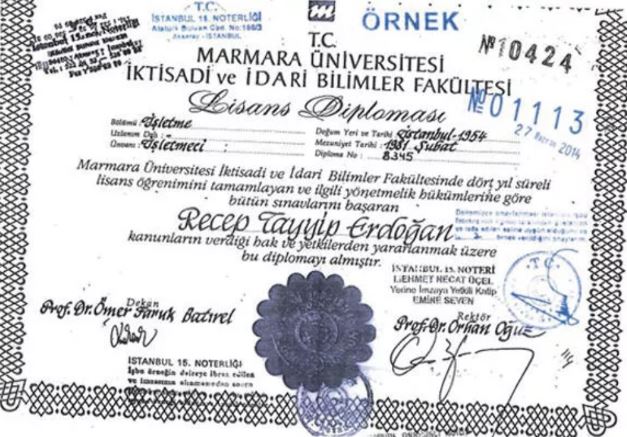 T.C.
İSTANBUL 15. NOTERLİĞİ
Atatürk Bulvarı Cad. No:186/3
Aksaray - İSTANBUL
ÖRNEK
Nº 10424
T.C.
MARMARA ÜNİVERSİTESİ
İKTİSADİ ve İDARİ BİLİMLER FAKÜLTESİ
Nº 01113
27 Haziran 2014
Lisans Diploması
Bölümü : İşletme
Doğum Yeri ve Tarihi : İstanbul-1954
Uzlanım Dalı : -
Mezuniyet Tarihi : 1981 Şubat
Ünvanı : İşletmeci
Diploma No : 8345
Marmara Üniversitesi İktisadi ve İdari Bilimler Fakültesinde dört yıl süreli
lisans öğrenimini tamamlayan ve ilgili yönetmelik hükümlerine göre
bütün sınavlarını başaran
Recep Tayyip Erdoğan
kanunların verdiği hak ve yetkilerden yararlanmak üzere
bu diplomayı almıştır.
İSTANBUL 15. NOTERİ
MEHMET NECAT ÜÇEL
Yerine İmzaya Yetkili Katip
EMİNE SEVEN
T.C.
Dekan
Prof. Dr. Ömer Faruk Batırel
Rektör
Prof. Dr. Orhan Oğuz
İSTANBUL 15. NOTERLİĞİ
İşbu örneğin daireye ibraz edilen
ÖRNEK